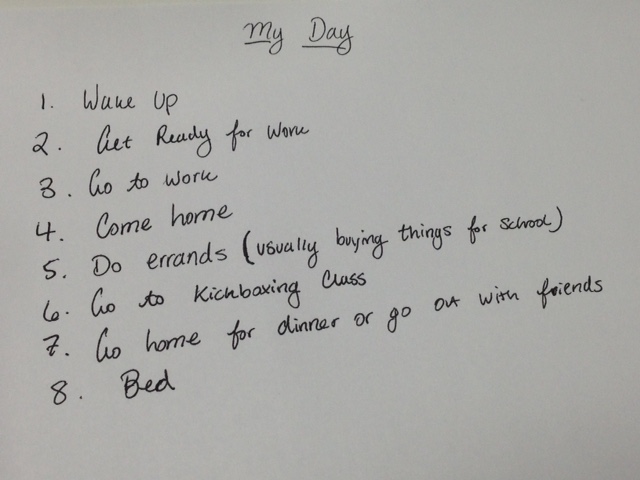 My Day
1. Wake Up
2. Get Ready for Work
3. Go to Work
4. Come home
5. Do errands (usually buying things for school)
6. Go to Kickboxing Class
7. Go home for dinner or go out with friends
8. Bed